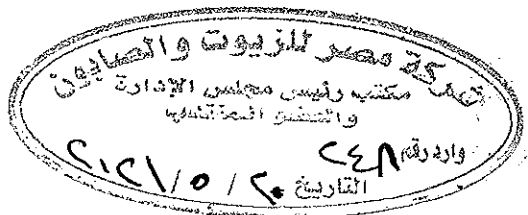 شركة مصر للزيوت والصابون
مكتب رئيس مجلس الإدارة
والعضو المنتدب
وارد رقم ٢٤٨
التاريخ ٢٠ / ٥ / ٢٠٢١